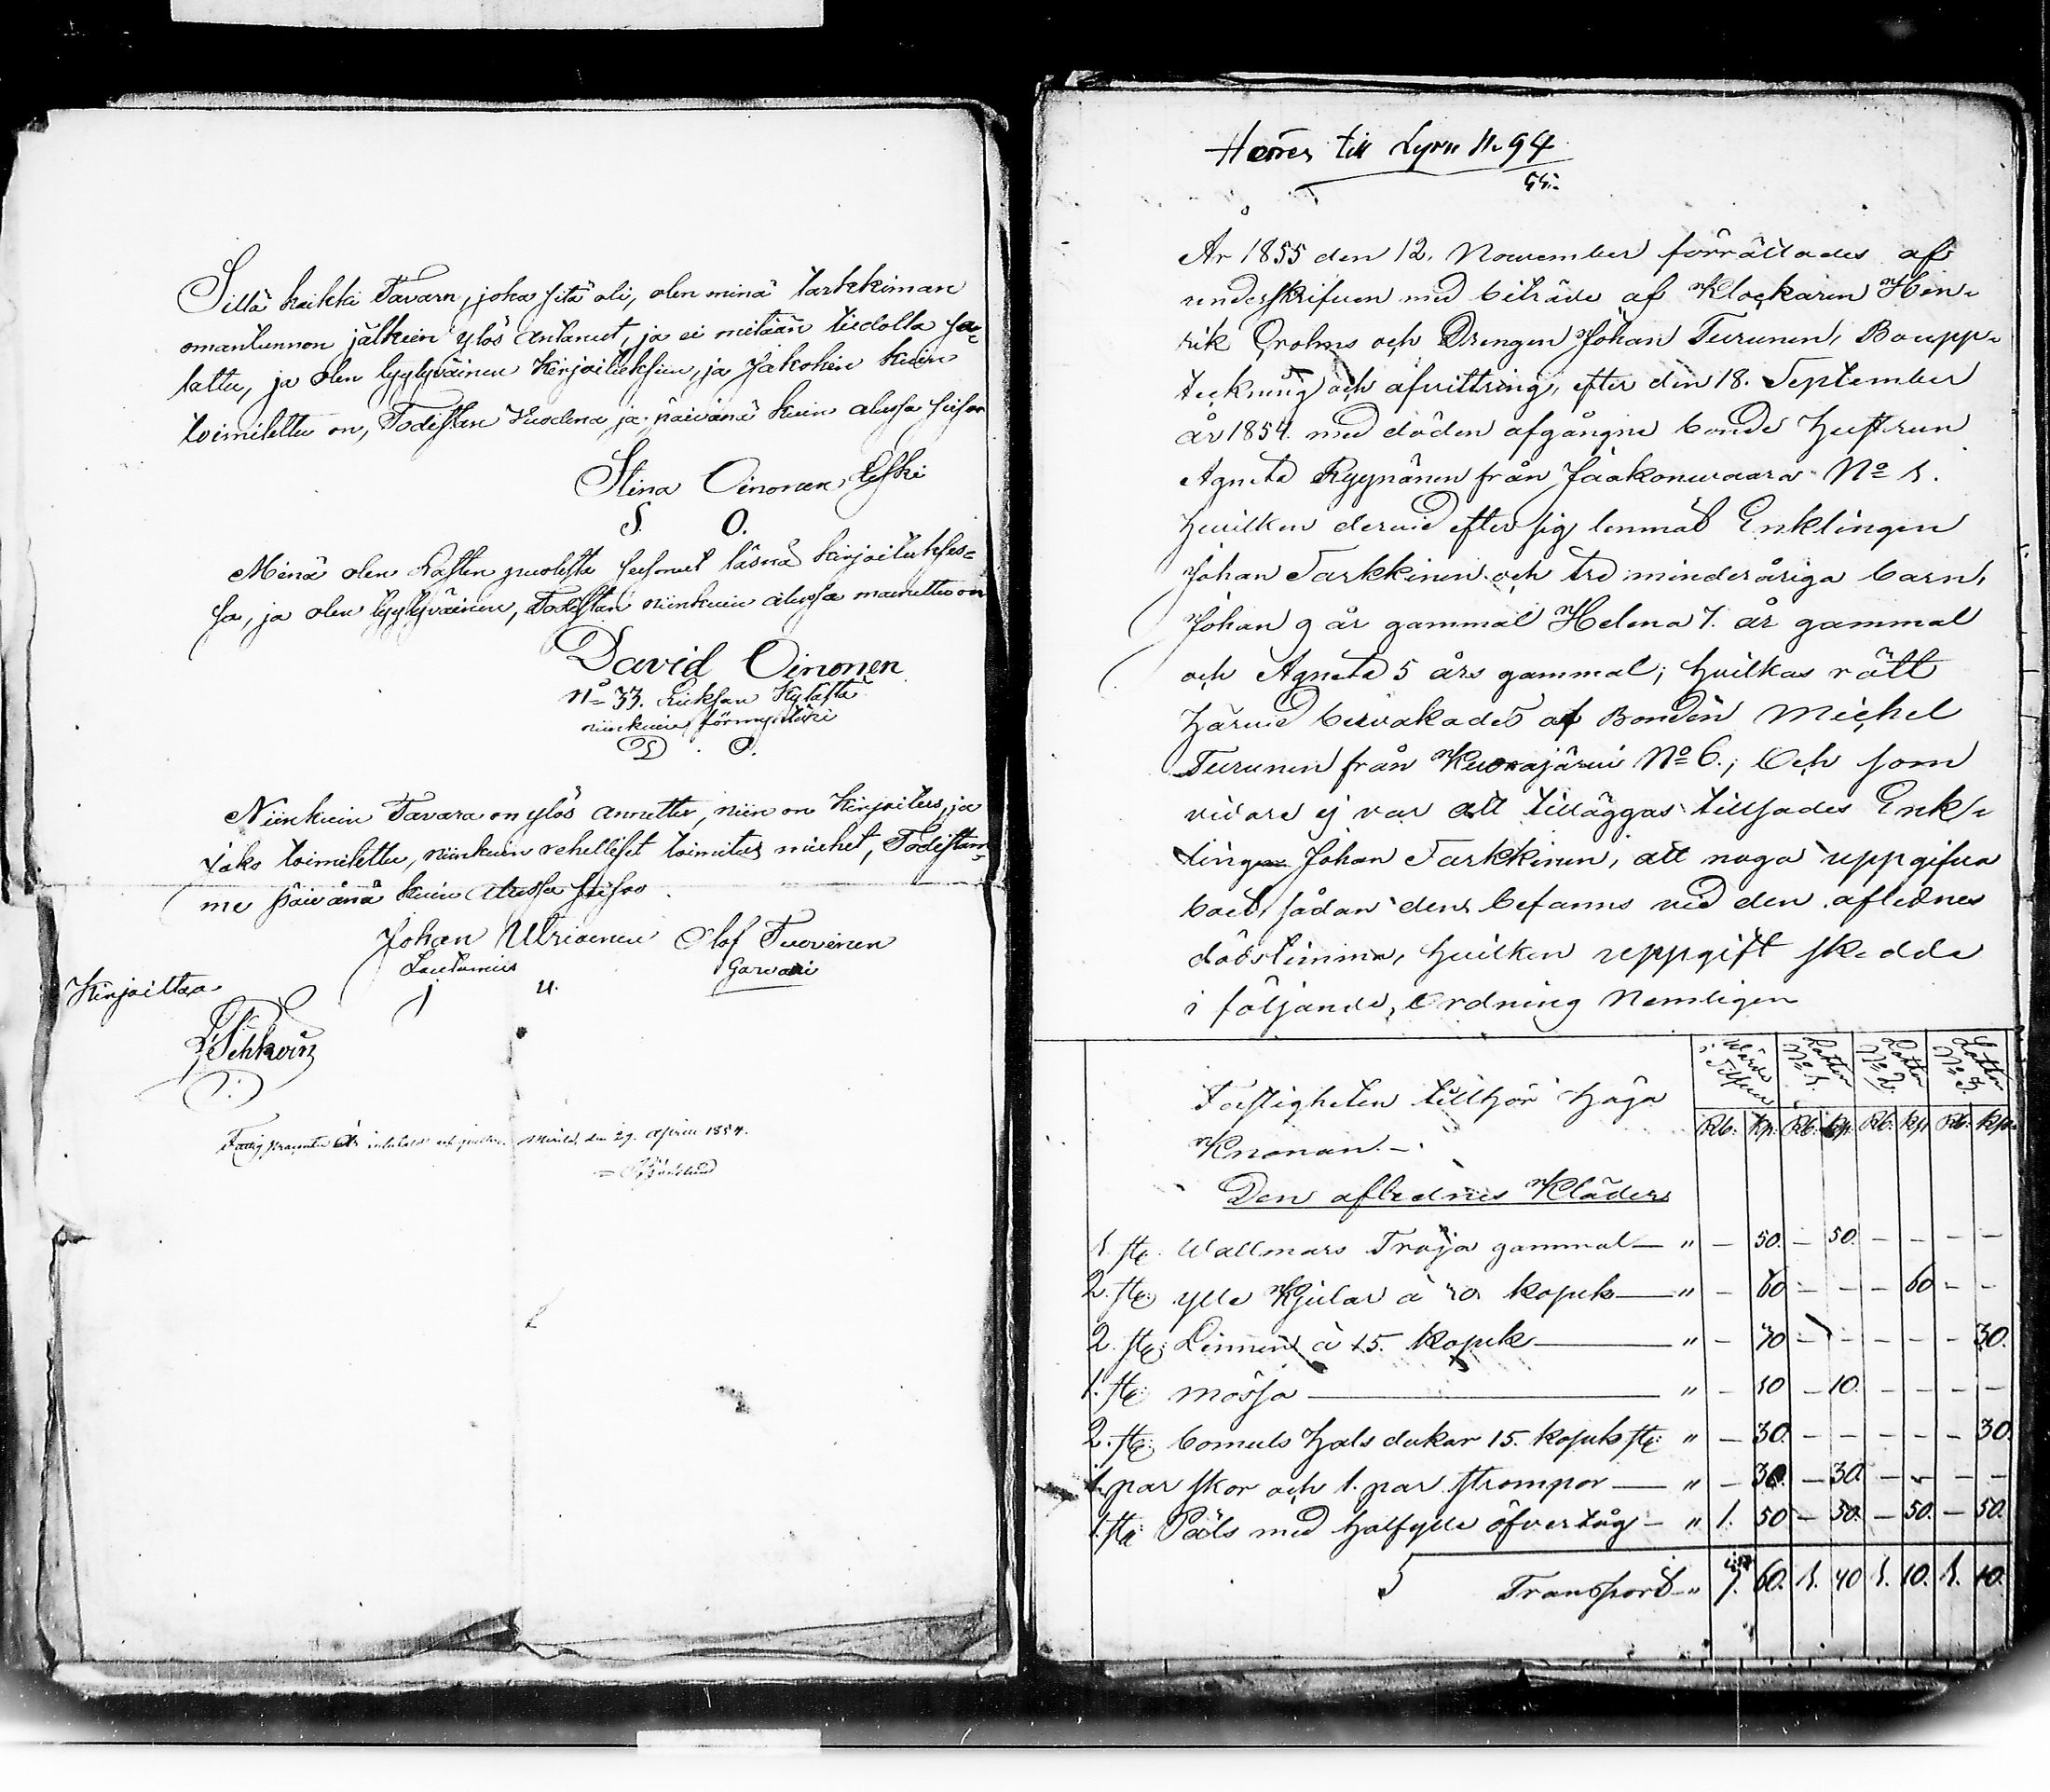 Sillä kaikki Tavara, joka sitä oli, olen minä tarkkiman
omantunnon jälkeen ylös antanut, ja ei mitään tiedolla sa-
lattu, ja olen tyytyväinen Kirjoitukseen, ja Jakohin kuin
toimitettu on, Todistan Vuodena ja päivänä kuin alussa seisoo
Stina Oinonen, Leski
S. O.
Minä olen Lasten puolesta seisonut läsnä kirjoitukses-
sa, ja olen tyytyväinen, Todistan niinkuin alussa mainittu on
David Oinonen
No 33. Kylästä
niinkuin förmyntäri
D. O.
Niinkuin Tavara on ylös annettu, niin on Kirjoitus, ja
Jako toimitettu, niinkuin rehelliset toimitus miehet, Todistam-
me päivänä kuin alussa seisoo
Johan Ulriainen Olof Tuovinen
Lautamies Garvari
J U.
Kirjoittaa
Fattig procenten är den 29. April 1854.
Hörer till Lysn N. 94
55.
År 1855 den 12. November förrättades af
underskrifven med biträde af Klockaren Hen-
rik Crohns och Drengen Johan Turunen, Boupp-
teckning och afvittring, efter den 18. September
år 1854. med döden afgångne bonde hustrun
Agneta Ryynänen från Jaakonvaara No 1.
hvilken dervid efter sig lemnat Enklingen
Johan Tarkkinen och tre minderåriga barn,
Johan 9 år gammal Helena 7. år gammal
och Agneta 5 års gammal; hvilkas rätt
härvid bevakades af Bonden Michel
Turunen från Kuorajärvi No 6.; Och som
vidare ej var att tilläggas tillsades Enk-
lingen Johan Tarkkinen, att noga uppgifva
boet, sådan den befanns vid den aflednes
dödstimma, hvilken uppgift skedde
i följande, Ordning Nemligen
Wärde i Silfver Lotten No 1. Lotten No 2. Lotten No 3.
Fastigheten tillhör höga
Rb. Kp. Rb. Kp. Rb. Kp. Rb. Kp.
Kronan. -
Den aflednes Kläder
1. st. Wallmars Tröja gammal — " — 50. — 50. — — — —
2. st. ylle Kjolar à 30. kopek — " — 60 — — — 60 — —
2. st. Linnen à 15. kopek — " — 30 — — — — — 30.
1. st. mössa — " — 10 — 10. — — — —
2. st. bomuls hals dukar 15. kopek st. " — 30. — — — — — 30.
1. par skor och 1. par strompor — " — 30. — 30. — — — —
1. st. Päls med halfylle öfvertåg — " 1. 50 — 50. — 50. — 50.
Transport — " 3. 60. 1. 40 1. 10. 1. 10.